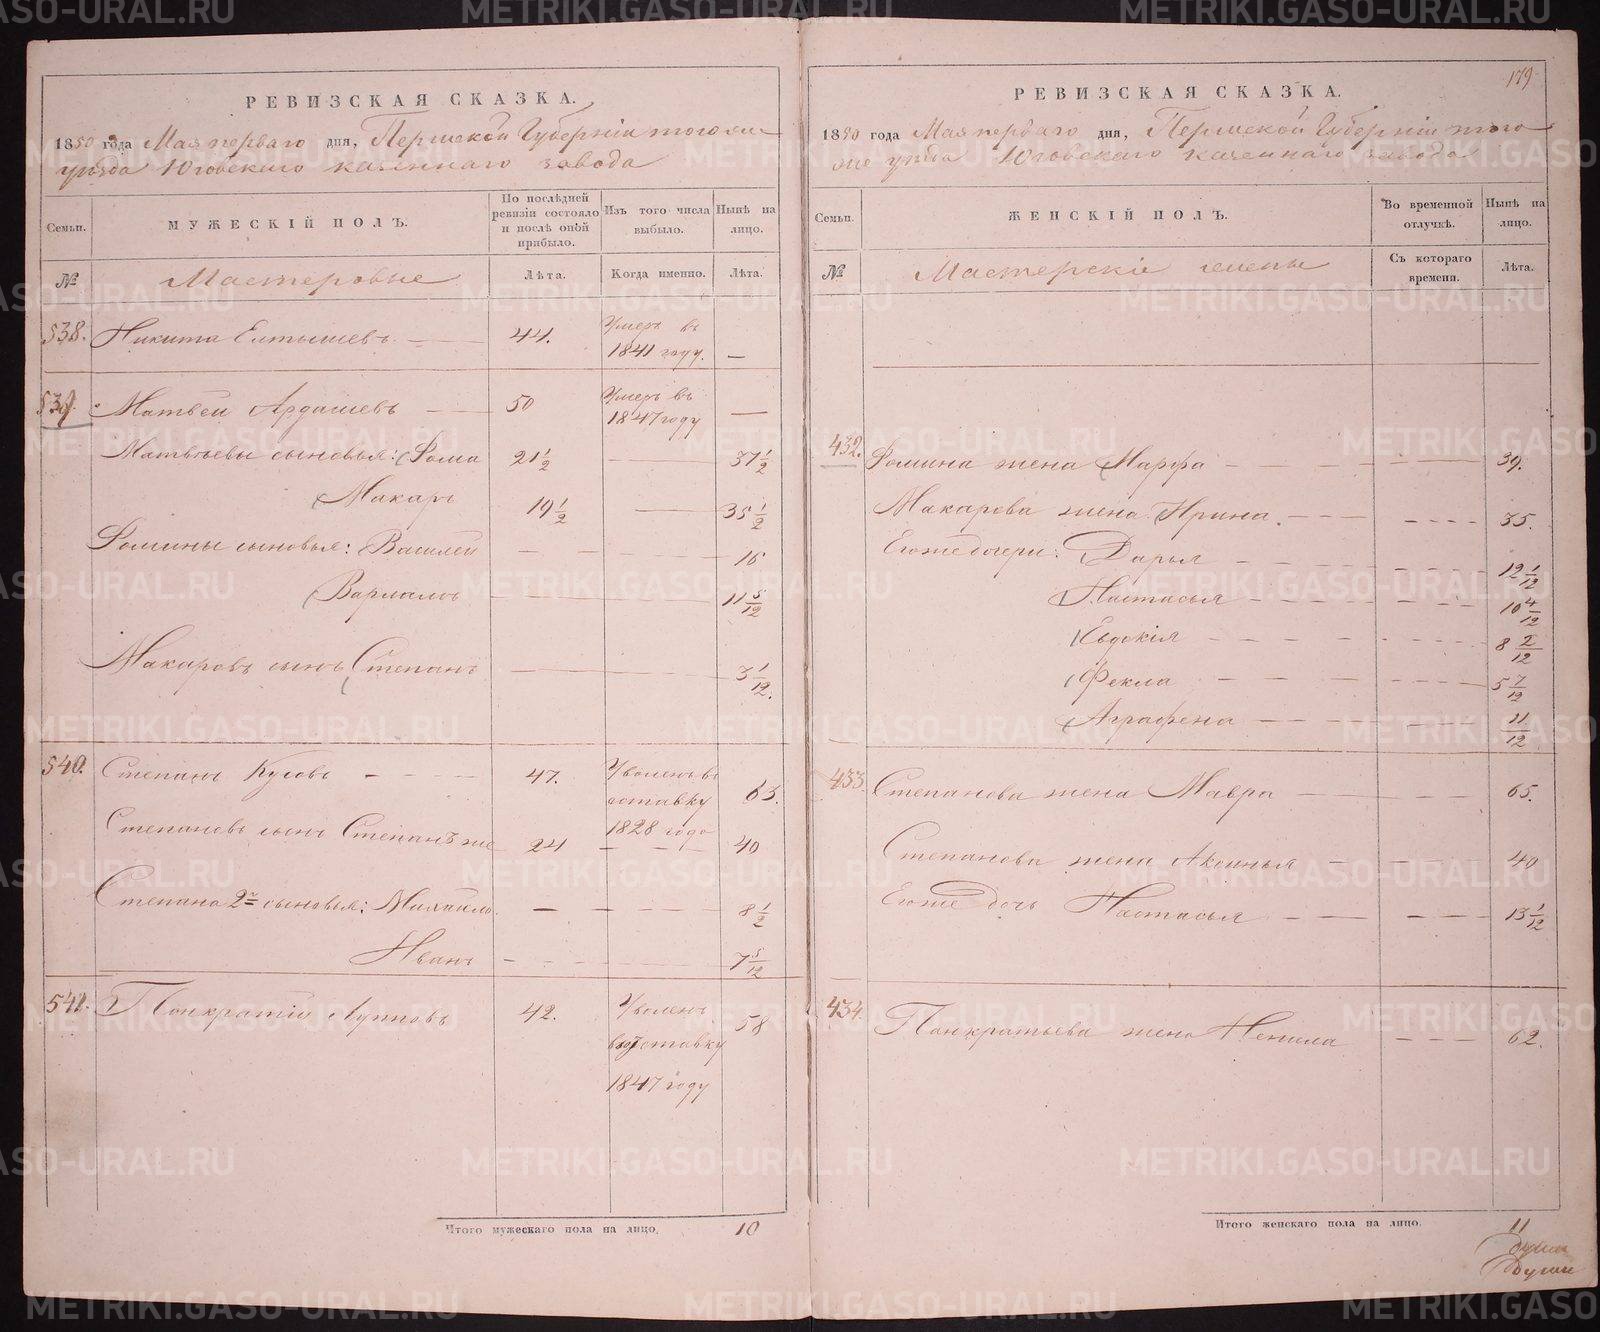 РЕВИЗСКАЯ СКАЗКА.
1850 года Мая перваго дня, Пермской Губерніи того же
уѣзда Юговскаго казеннаго завода
Семьи. МУЖЕСКІЙ ПОЛЪ. По послѣдней ревизіи состояло и послѣ оной прибыло. Изъ того числа выбыло. Нынѣ на лицо.
№ Мастеровые Лѣта. Когда именно. Лѣта.
538. Никита Елтышевъ 44. Умеръ въ 1841 году. —
539. Матвей Ардашевъ 50 Умеръ въ 1847 году —
Матвѣевы сыновья: Фома 21 1/2 37 1/2
Макаръ 19 1/2 35 1/2
Фомины сыновья: Василей 16
Варламъ 11 5/12
Макаровъ сынъ Степанъ 3 1/12.
540. Степанъ Кусовъ 47. Уволенъ въ отставку 1828 года 63.
Степановъ сынъ Степанъ же 24 40
Степана 2го сыновья: Михайло 8 1/2
Иванъ 7 5/12
541. Панкратій Лупповъ 42. Уволенъ въ отставку 1847 году 58
Итого мужескаго пола на лицо, 10
179
РЕВИЗСКАЯ СКАЗКА.
1850 года Мая перваго дня, Пермской Губерніи того
же уѣзда Юговскаго казеннаго завода
Семьи. ЖЕНСКІЙ ПОЛЪ. Во временной отлучкѣ. Нынѣ на лицо.
№ Мастерскіе жены Съ котораго времени. Лѣта.
432. Фомина жена Марфа 39.
Макарова жена Ирина. 35.
Его же дочери: Дарья 12 1/12
Настасья 10 4/12
Евдокія 8 2/12
Фекла 5 7/12
Аграфена 11/12
433. Степанова жена Мавра 65.
Степанова жена Аксинья 40
Его же дочь Настасья 13 1/12
434. Панкратьева жена Ненила 62.
Итого женскаго пола на лицо. 11
METRIKI.GASO-URAL.RU